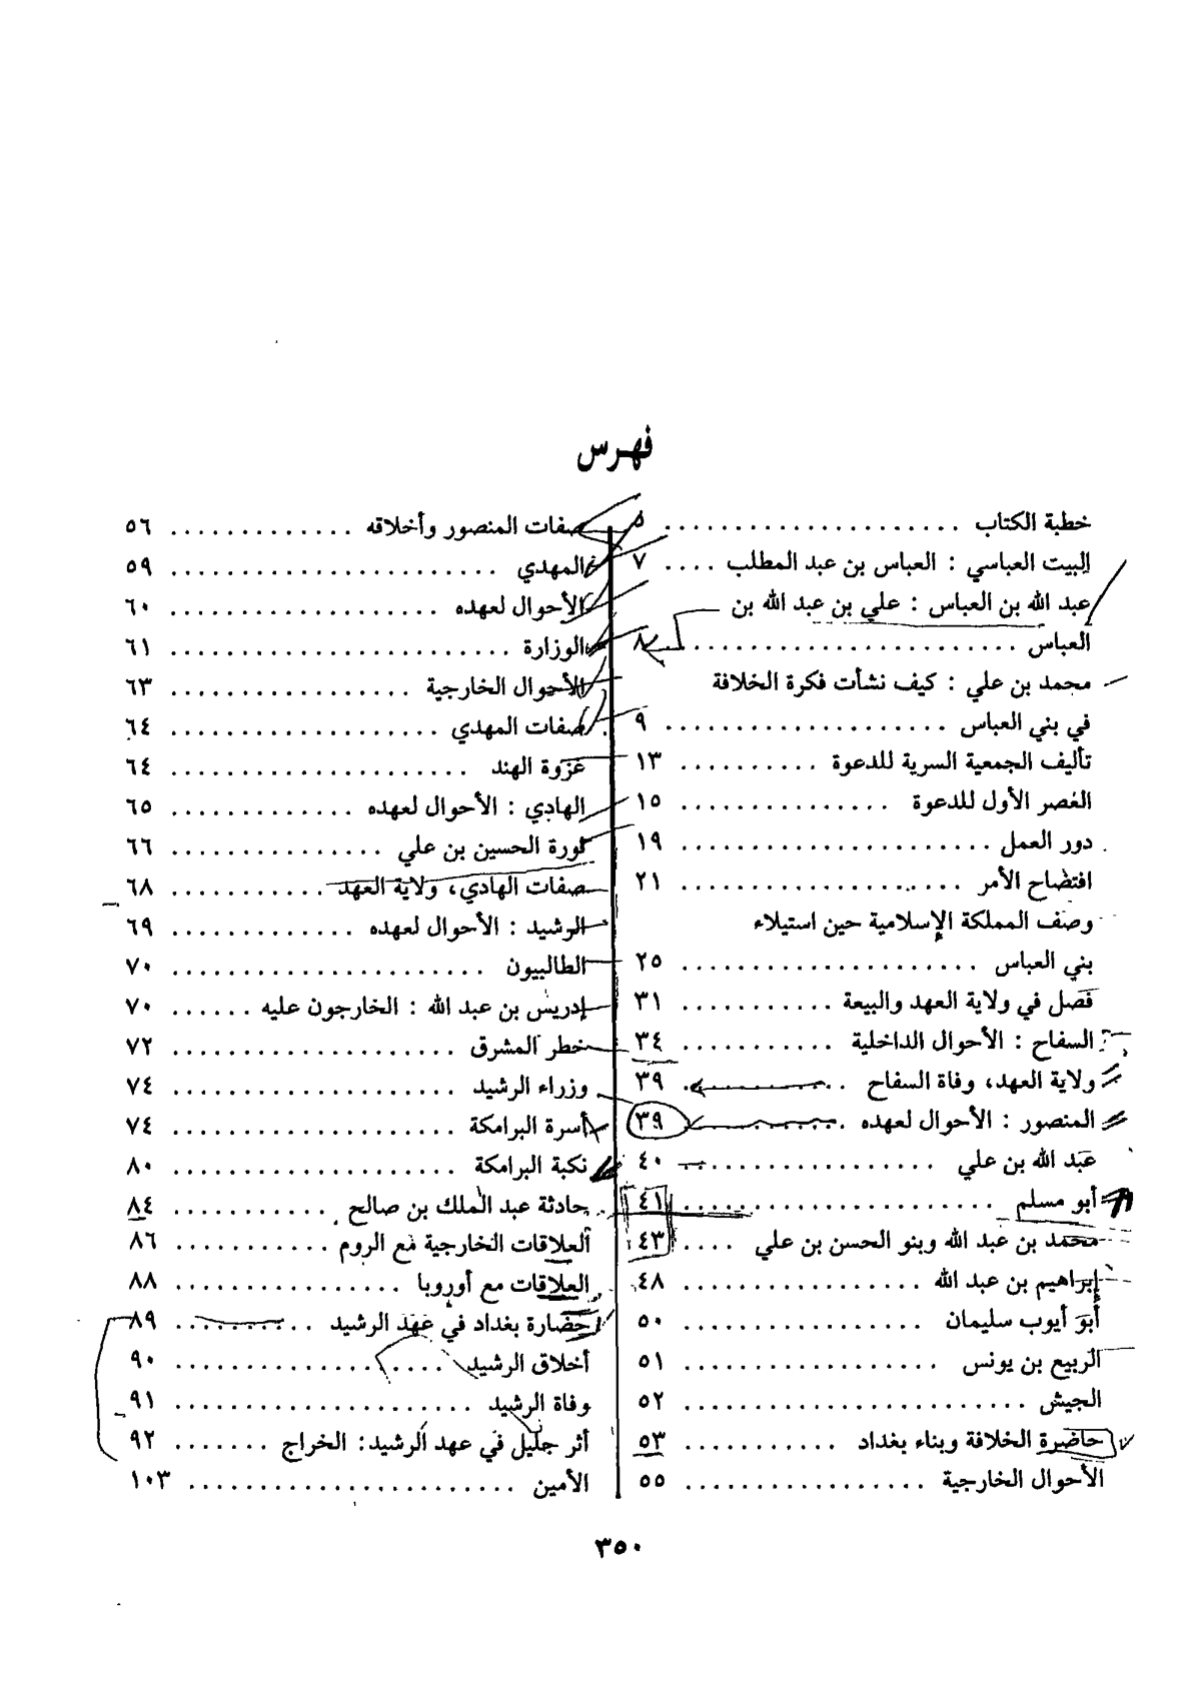 فهرس
خطبة الكتاب ..................... ٥
البيت العباسي : العباس بن عبد المطلب .... ٧
عبد الله بن العباس : علي بن عبد الله بن
العباس ....................... ٨
محمد بن علي : كيف نشأت فكرة الخلافة
في بني العباس .................... ٩
تأليف الجمعية السرية للدعوة .......... ١٣
العصر الأول للدعوة ............... ١٥
دور العمل ...................... ١٩
افتضاح الأمر .................... ٢١
وصف المملكة الإسلامية حين استيلاء
بني العباس ..................... ٢٥
فصل في ولاية العهد والبيعة ........... ٣١
السفاح : الأحوال الداخلية ........... ٣٤
ولاية العهد، وفاة السفاح ........... ٣٩
المنصور : الأحوال لعهده ........... ٣٩
عبد الله بن علي .................. ٤٠
أبو مسلم ...................... ٤١
محمد بن عبد الله وبنو الحسن بن علي .... ٤٣
إبراهيم بن عبد الله ................. ٤٨
أبو أيوب سليمان ................. ٥٠
الربيع بن يونس .................. ٥١
الجيش ......................... ٥٢
حاضرة الخلافة وبناء بغداد ........... ٥٣
الأحوال الخارجية ................. ٥٥
صفات المنصور وأخلاقه ............. ٥٦
المهدي ........................ ٥٩
الأحوال لعهده ................... ٦٠
الوزارة ......................... ٦١
الأحوال الخارجية ................. ٦٣
صفات المهدي ................... ٦٤
غزوة الهند ...................... ٦٤
الهادي : الأحوال لعهده ............. ٦٥
ثورة الحسين بن علي ............... ٦٦
صفات الهادي، ولاية العهد ........... ٦٨
الرشيد : الأحوال لعهده ............. ٦٩
الطالبيون ....................... ٧٠
إدريس بن عبد الله : الخارجون عليه ...... ٧٠
خطر المشرق .................... ٧٢
وزراء الرشيد .................... ٧٤
أسرة البرامكة .................... ٧٤
نكبة البرامكة .................... ٨٠
حادثة عبد الملك بن صالح ........... ٨٤
العلاقات الخارجية مع الروم ........... ٨٦
العلاقات مع أوروبا ................ ٨٨
حضارة بغداد في عهد الرشيد .......... ٨٩
أخلاق الرشيد ................... ٩٠
وفاة الرشيد ..................... ٩١
أثر جليل في عهد الرشيد: الخراج ....... ٩٢
الأمين ........................ ١٠٣
٣٥٠